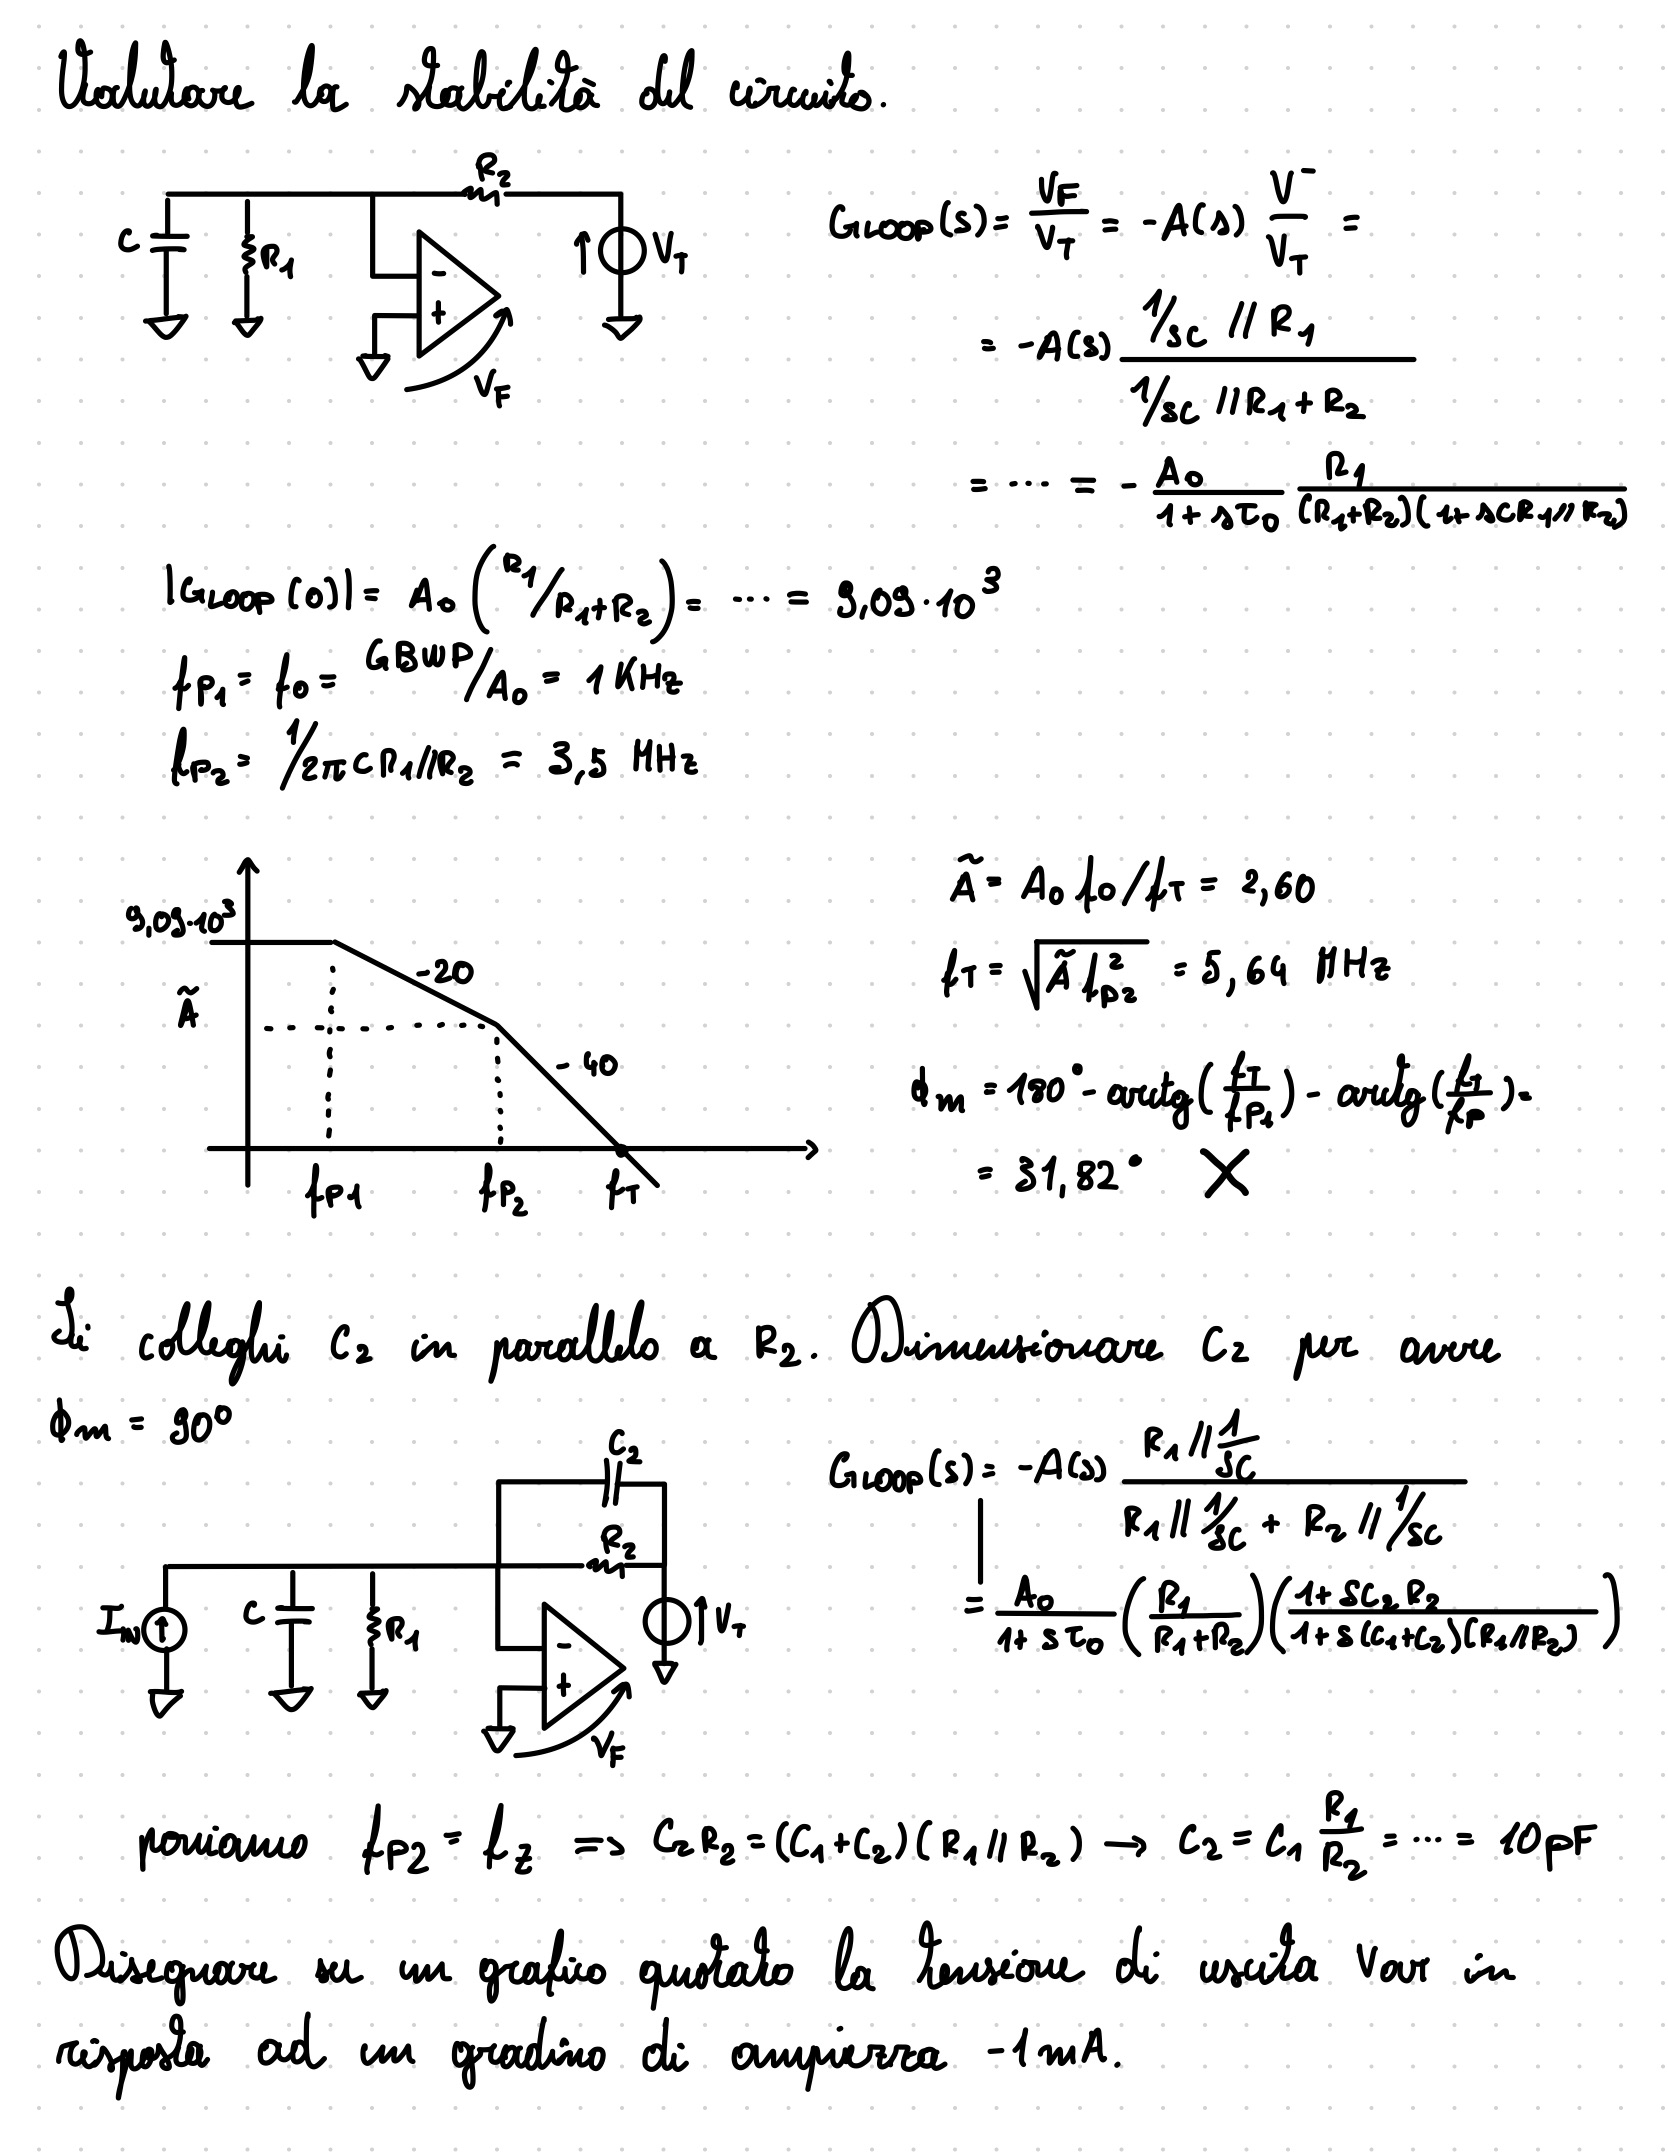 Valutare la stabilità del circuito.
R2
C
R1
-
+
VF
VT
GLOOP(s) = VF/VT = -A(s) V-/VT =
= -A(s) (1/sC // R1) / (1/sC // R1 + R2)
= ... = - A0/(1+sτ0) R1/((R1+R2)(1+sCR1//R2))
|GLOOP(0)| = A0 (R1/R1+R2) = ... = 9,09·10^3
fP1 = f0 = GBWP/A0 = 1 KHz
fP2 = 1/2πCR1//R2 = 3,5 MHz
9,09·10^3
Ã
-20
-40
fP1 fP2 fT
Ã = A0 f0/fT = 2,60
fT = √(Ã fP2^2) = 5,64 MHz
ϕm = 180° - arctg(fT/fP1) - arctg(fT/fP) =
= 31,82° X
Si colleghi C2 in parallelo a R2. Dimensionare C2 per avere
ϕm = 90°
C2
R2
IIN
C
R1
-
+
VF
VT
GLOOP(s) = -A(s) (R1 // 1/sC) / (R1 // 1/sC + R2 // 1/sC)
= A0/(1+sτ0) (R1/(R1+R2)) ((1+sC2R2)/(1+s(C1+C2)(R1//R2)))
poniamo fP2 = fz => C2R2 = (C1+C2)(R1//R2) → C2 = C1 R1/R2 = ... = 10pF
Disegnare su un grafico quotato la tensione di uscita Vout in
risposta ad un gradino di ampiezza -1mA.